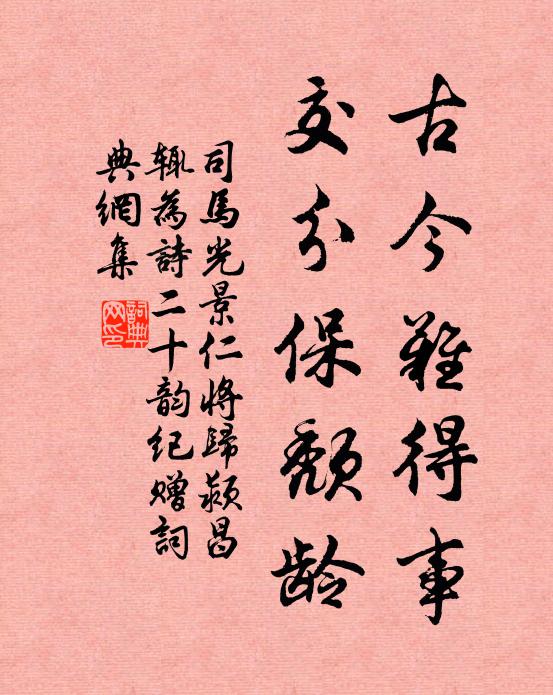 古今難得事
交分保頹齡
司馬光景仁將歸潁昌
輒為詩二十韵紀贈詞
典網集
詞典網印